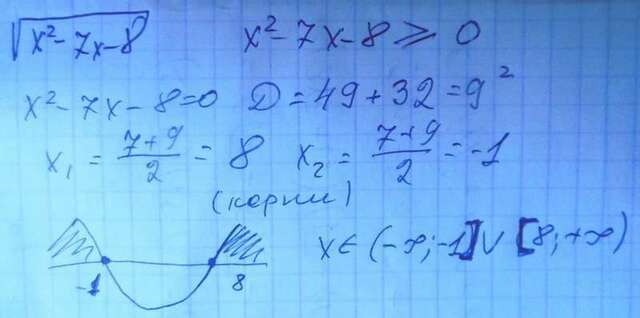 √(x² - 7x - 8) x² - 7x - 8 ≥ 0
x² - 7x - 8 = 0 D = 49 + 32 = 9²
x₁ = (7+9)/2 = 8 x₂ = (7+9)/2 = -1
(корни)
-1 8 x ∈ (-∞; -1] ∪ [8; +∞)